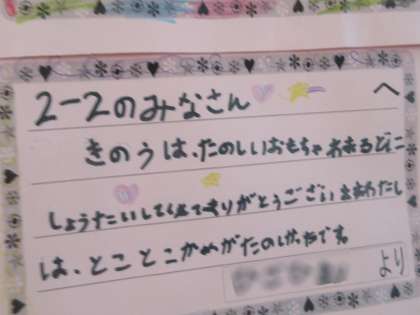 2-2のみなさん へ
きのうは、たのしいおもちゃ
しょうたいしてくれてありがとうございます わたし
は、とことこかめがたのしかったです。
より